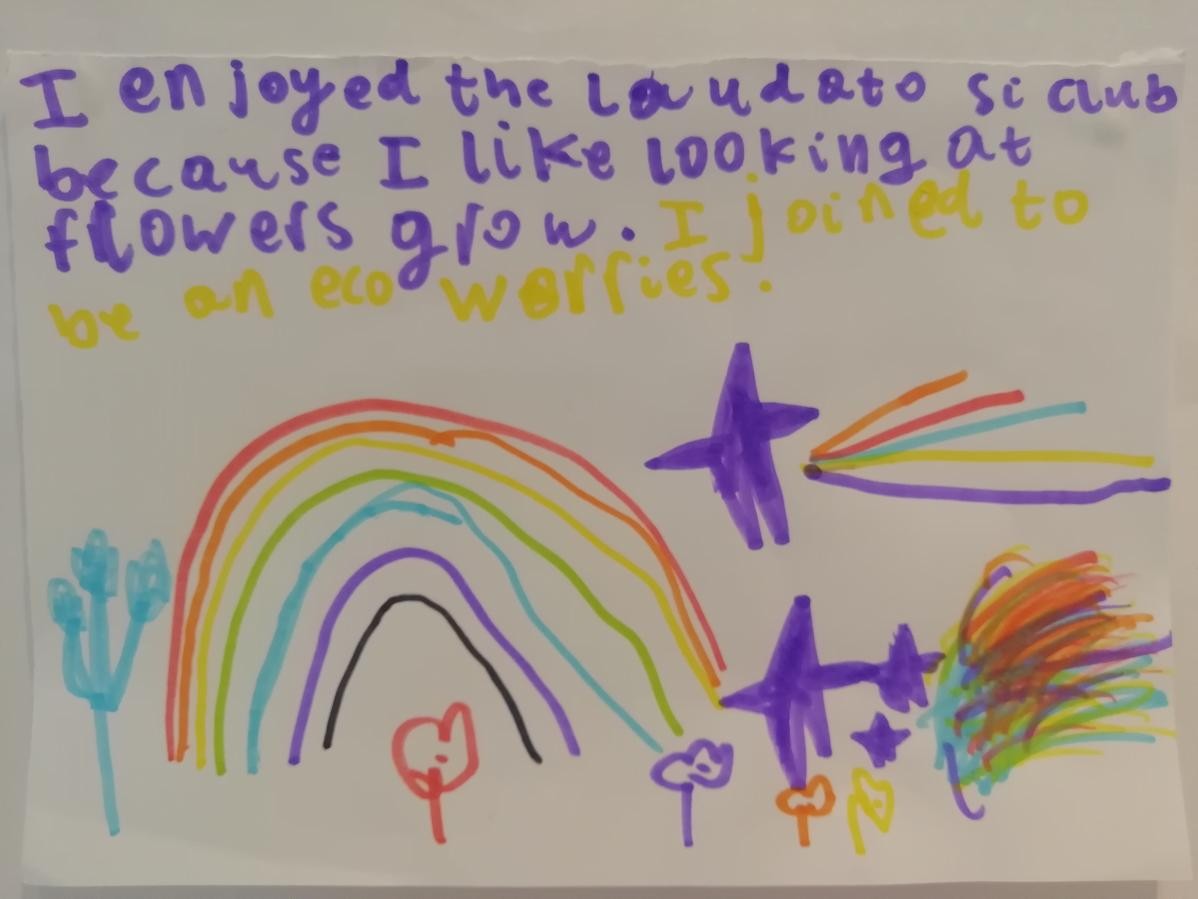 I enjoyed the Laudato si club
because I like looking at
flowers grow. I joined to
be an eco worries.